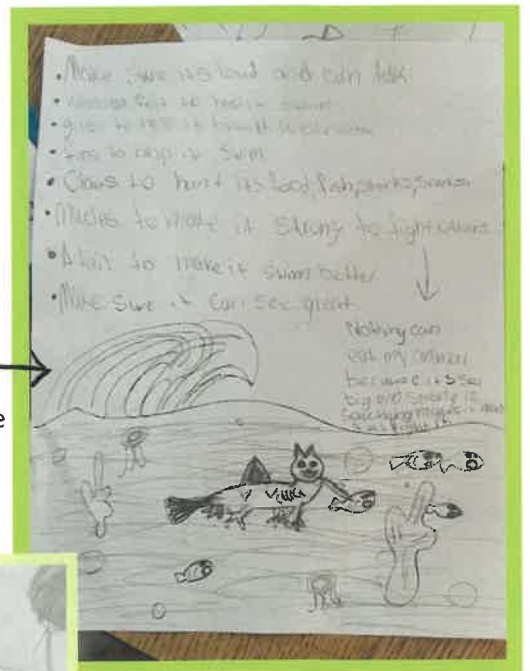 • Make sure its loud and can talk
• webbed feet to help it swim
• gills to help it breath underwater
• fins to help it swim
• Claws to hunt its food, fish, sharks,
• Mucles to make it strong to fight others
• A tail to make it swim better
• Make sure it can see great
Nothing can
eat my animal
because it s so
big and